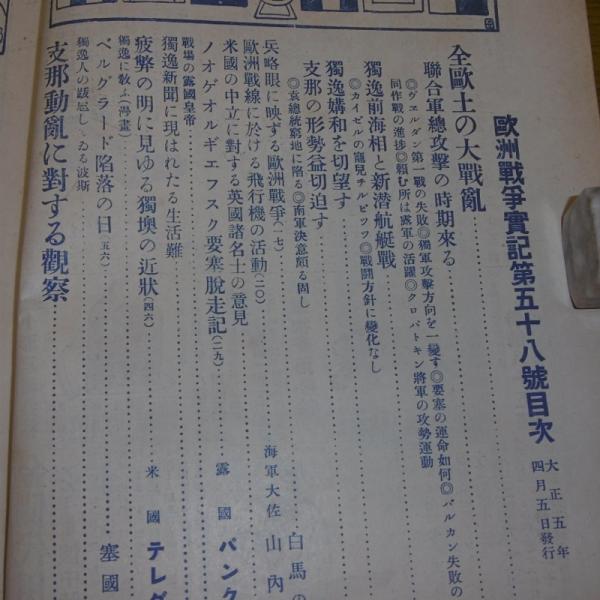 歐洲戰爭實記第五十八號目次
大正五年
四月五日發行
全歐土の大戰亂
聯合軍總攻擊の時期來る
◎ヴエルダン第一戰の失敗◎獨軍攻擊方向を一變す◎要塞の運命如何◎バルカン失敗の
同作戰の進捗◎賴む所は露軍の活躍◎クロパトキン將軍の攻勢運動
獨逸前海相と新潛航艇戰
◎カイゼルの寵兒チルピツツ◎戰鬪方針に變化なし
獨逸媾和を切望す
支那の形勢益切迫す
◎袁總統窮地に陷る◎南軍決意頗る固し
兵略眼に映ずる歐洲戰爭(一七) 白馬の
歐洲戰線に於ける飛行機の活動(二〇) 海軍大佐 山內
米國の中立に對する英國諸名士の意見
ノオゲオルギエフスク要塞脫走記(二九) 露國 バンク
戰場の露國皇帝
獨逸新聞に現はれたる生活難
疲弊の明に見ゆる獨墺の近狀(四六) 米國 テレグ
獨逸に敎ふ(漫畫)
ベルグラード陷落の日(五六) 塞國
獨逸人の跋扈しゐる波斯
支那動亂に對する觀察